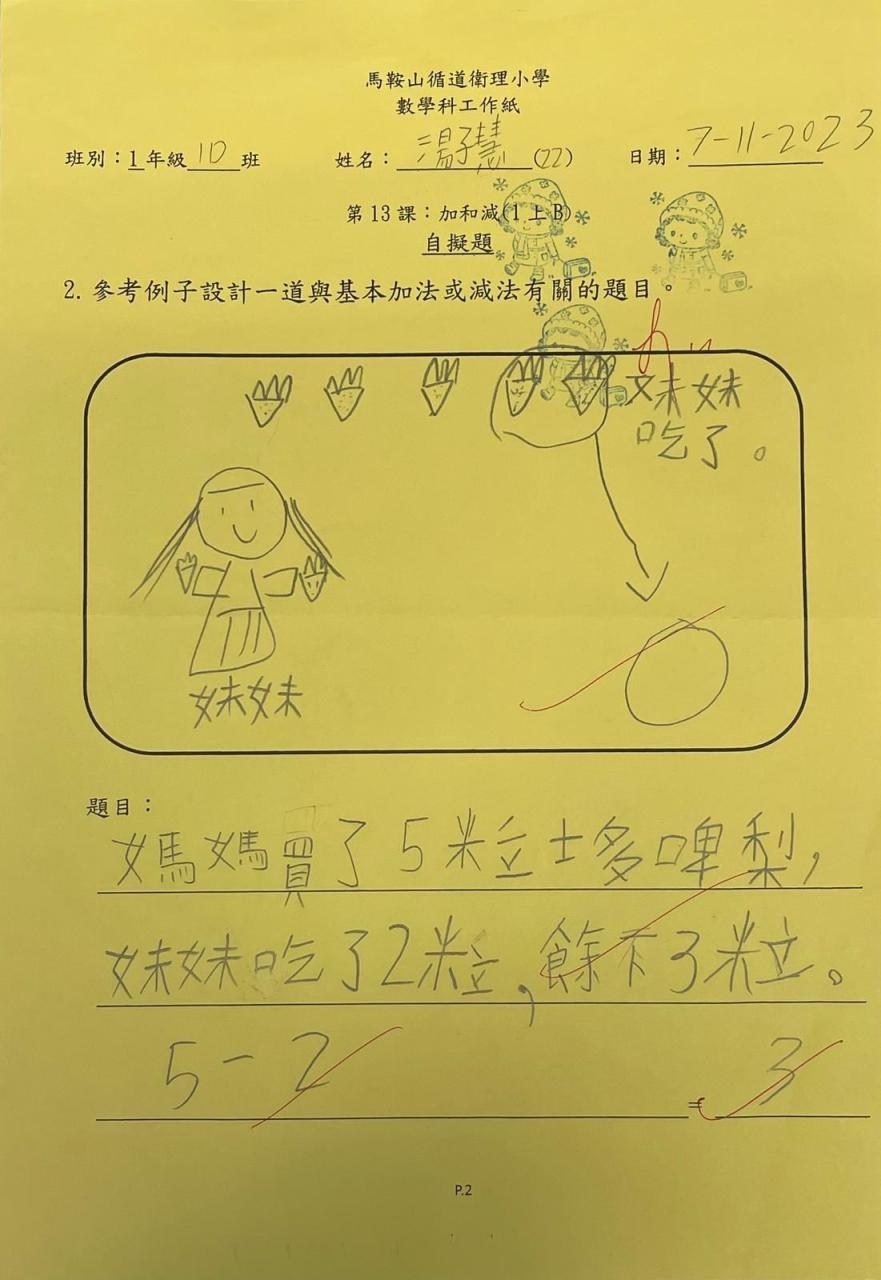 馬鞍山循道衛理小學
數學科工作紙
班別：1年級1D班 姓名：湯子慧(22) 日期：7-11-2023
第13課：加和減(1上B)
自擬題
2. 參考例子設計一道與基本加法或減法有關的題目。
妹妹
吃了。
妹妹
題目：
媽媽買了5粒士多啤梨，
妹妹吃了2粒，餘下3粒。
5-2=3
P.2